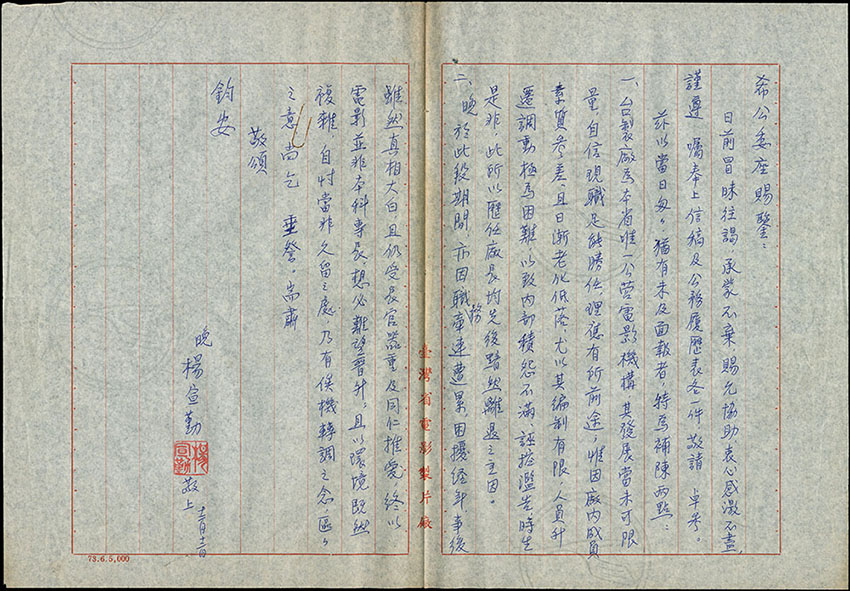 希公委座賜鑒：
日前冒昧往謁，承蒙不棄賜允協助，衷心感激不盡，
謹遵　囑奉上信稿及公務履歷表各一件敬請　卓參。
茲以當日匆々，猶有未及面報者，特為補陳兩點：
一、台製廠為本省唯一公營電影機構，其發展當未可限
量，自信現職足能勝任，理應有所前途，惟因廠內成員
素質參差，且日漸老化低落，尤以其編制有限，人員升
遷調動極為困難，以致內部積怨不滿，誣控濫告時生
是非，此所以歷任廠長均先後黯然離退之主因。
二、晚於此段期間，亦因職務牽連遭累，困擾經年，事後
雖然真相大白，且仍受長官器重及同仁推愛，終以
電影並非本科專長，想必難望晉升，且以環境既然
複雜，自忖當非久留之處，乃有俟機轉調之念，區々
之意尚乞　垂詧。耑肅
敬頌
鈞安
晚　楊宣勤　敬上
楊宣勤
臺灣省電影製片廠
73.6.5,000